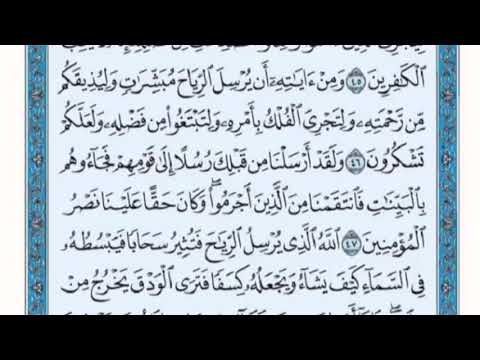 ٱلْكَٰفِرِينَ ٤٥ وَمِنْ ءَايَٰتِهِۦٓ أَن يُرْسِلَ ٱلرِّيَاحَ مُبَشِّرَٰتٍ وَلِيُذِيقَكُم
مِّن رَّحْمَتِهِۦ وَلِتَجْرِىَ ٱلْفُلْكُ بِأَمْرِهِۦ وَلِتَبْتَغُوا۟ مِن فَضْلِهِۦ وَلَعَلَّكُمْ
تَشْكُرُونَ ٤٦ وَلَقَدْ أَرْسَلْنَا مِن قَبْلِكَ رُسُلًا إِلَىٰ قَوْمِهِمْ فَجَآءُوهُم
بِٱلْبَيِّنَٰتِ فَٱنتَقَمْنَا مِنَ ٱلَّذِينَ أَجْرَمُوا۟ ۖ وَكَانَ حَقًّا عَلَيْنَا نَصْرُ
ٱلْمُؤْمِنِينَ ٤٧ ٱللَّهُ ٱلَّذِى يُرْسِلُ ٱلرِّيَٰحَ فَتُثِيرُ سَحَابًا فَيَبْسُطُهُۥ
فِى ٱلسَّمَآءِ كَيْفَ يَشَآءُ وَيَجْعَلُهُۥ كِسَفًا فَتَرَى ٱلْوَدْقَ يَخْرُجُ مِنْ